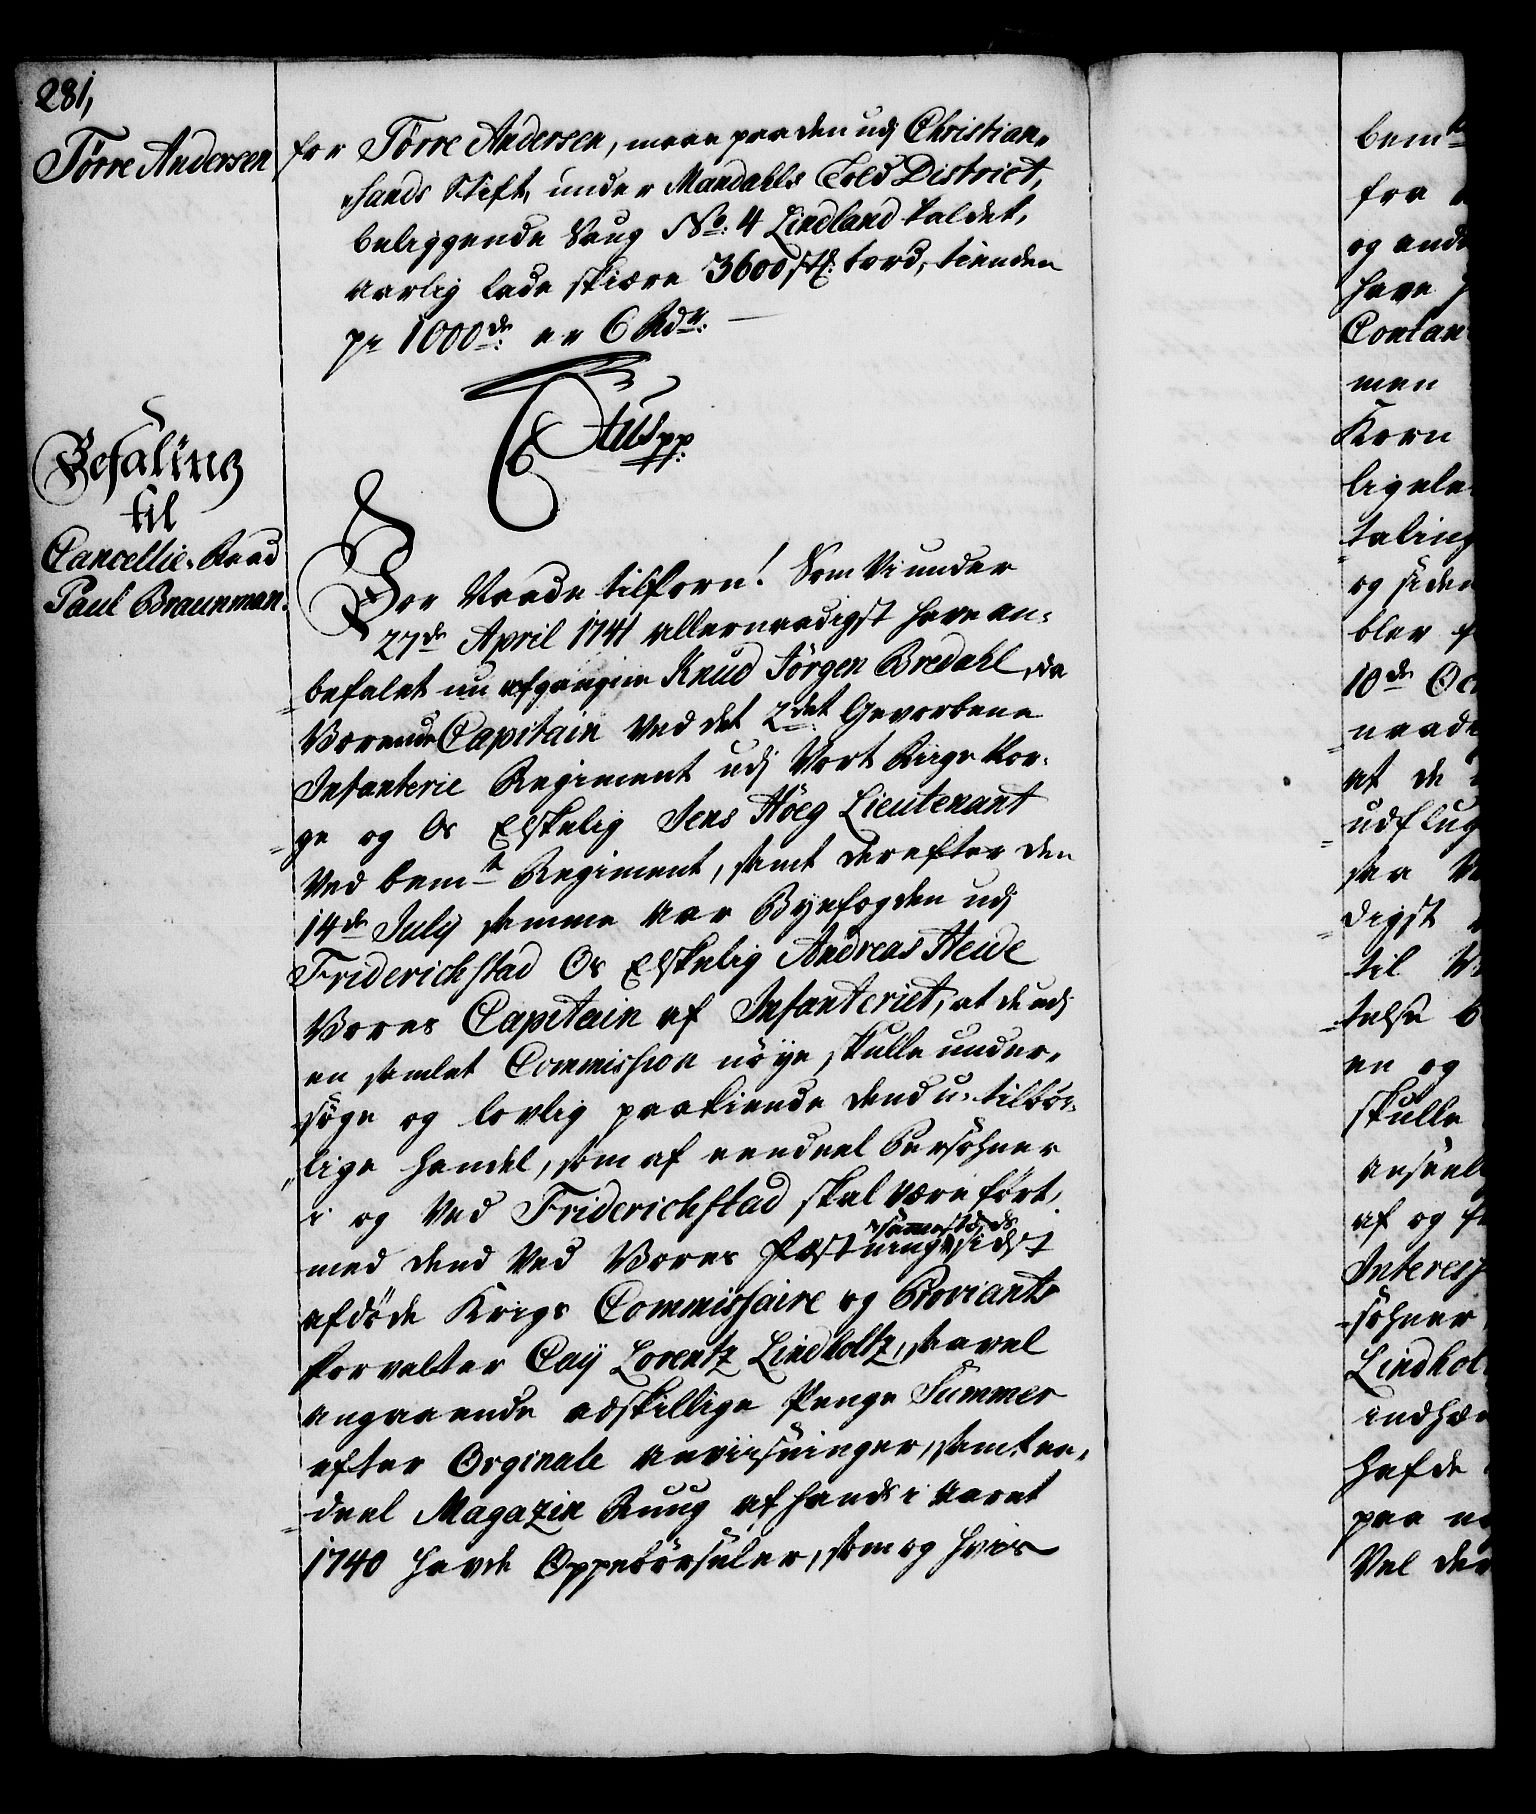 281,
Törre Andersen
for Törre Andersen, maae paa den udj Christian-
sands Stift, under Mandahls Told District,
beliggende Saug No: 4 Lindland kaldet,
aarlig lade skiære 3600 st: bord, tienden
pr 1000de er 6 Rdr: —
Titus pp:
Befaling
til
Cancellie-Raad
Paul Braunman.
Vor Naade tilforn! Som Vi under
27de April 1741 allernaadigst have an-
befalet nu afgangne Knud Jörgen Bredahl, da
Værende Capitain Ved det 2det Gevorbene
Infanterie Regiment udj Vort Rige Nor-
ge og Os Elskelig Jens Höeg Lieutenant
Ved bemte Regiment, samt derefter den
14de July samme Aar Byefogden udj
Friderichstad Os Elskelig Andreas Heide
Vores Capitain af Infanteriet, at de udj
en samlet Commission nöye skulle under-
söge og lovlig paakiende dend u-tilbör-
lige handel, som af eendeel Persohner
i og Ved Friderichstad skal være fört,
med dend Ved Vores Fæstninge sammestæds sidst
afdöde Krigs Commissaire og Proviant-
forvalter Caÿ Lorentz Lindholtz, saavel
angaaende adskillige Penge Summer
efter Orginale anviisninger, samt een-
deel Magazin Ruug af hands i Aaret
1740 havde Oppebörseler, som og hvis
bemte
fra
og and
have
Contan
men
Korn
ligele
taling
og siden
blev
10de Oct
naadi
at de
udflug
saa
digst
til
telse
en og
skulle
anseel
af og
Interess
söhner
Lindhol
indhæn
hafde
paa
Vel der